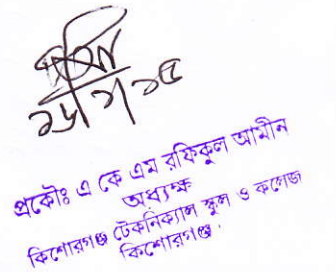 ২৬/৭/১৫
প্রকৌঃ এ কে এম রফিকুল আমীন
অধ্যক্ষ
কিশোরগঞ্জ টেকনিক্যাল স্কুল ও কলেজ
কিশোরগঞ্জ।